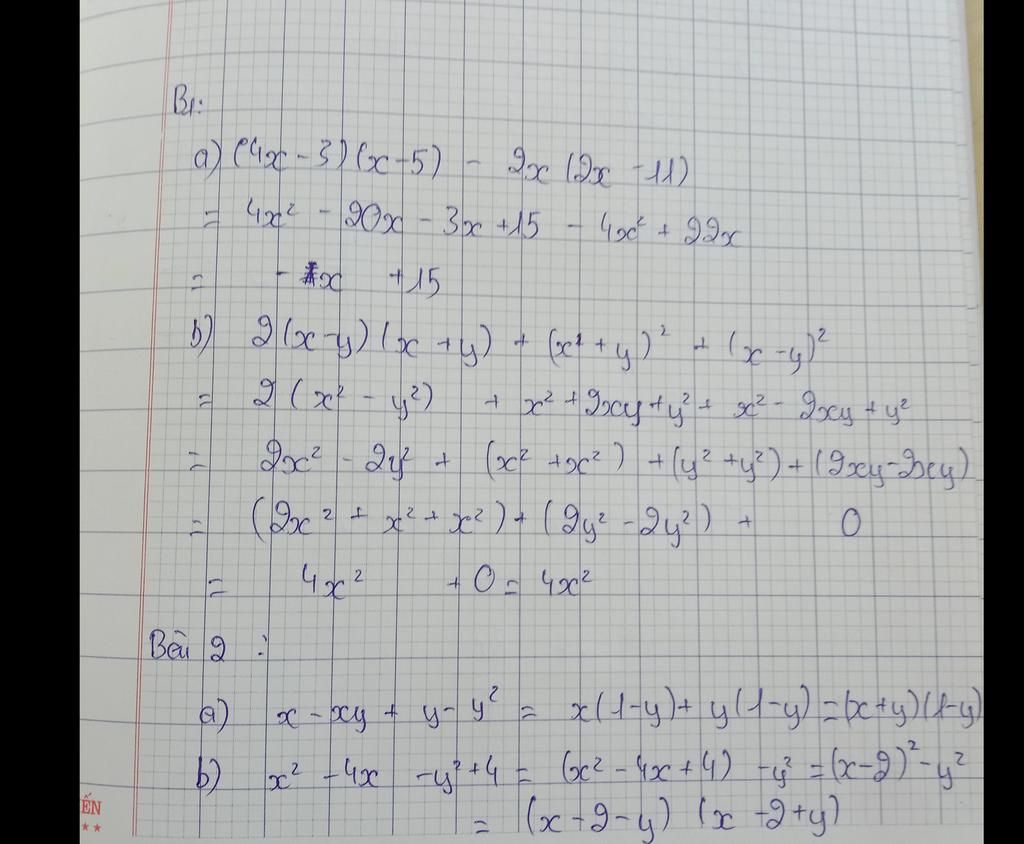 B1:
a) (4x - 3)(x - 5) - 2x (2x - 11)
= 4x² - 20x - 3x + 15 - 4x² + 22x
= - x + 15
b) 2(x - y)(x + y) + (x + y)² + (x - y)²
= 2(x² - y²) + x² + 2xy + y² + x² - 2xy + y²
= 2x² - 2y² + (x² + x²) + (y² + y²) + (2xy - 2xy)
= (2x² + x² + x²) + (2y² - 2y²) + 0
= 4x² + 0 = 4x²
Bài 2 :
a) x - xy + y - y² = x(1 - y) + y(1 - y) = (x + y)(1 - y)
b) x² - 4x - y² + 4 = (x² - 4x + 4) - y² = (x - 2)² - y²
= (x - 2 - y) (x - 2 + y)
ẾN
★★